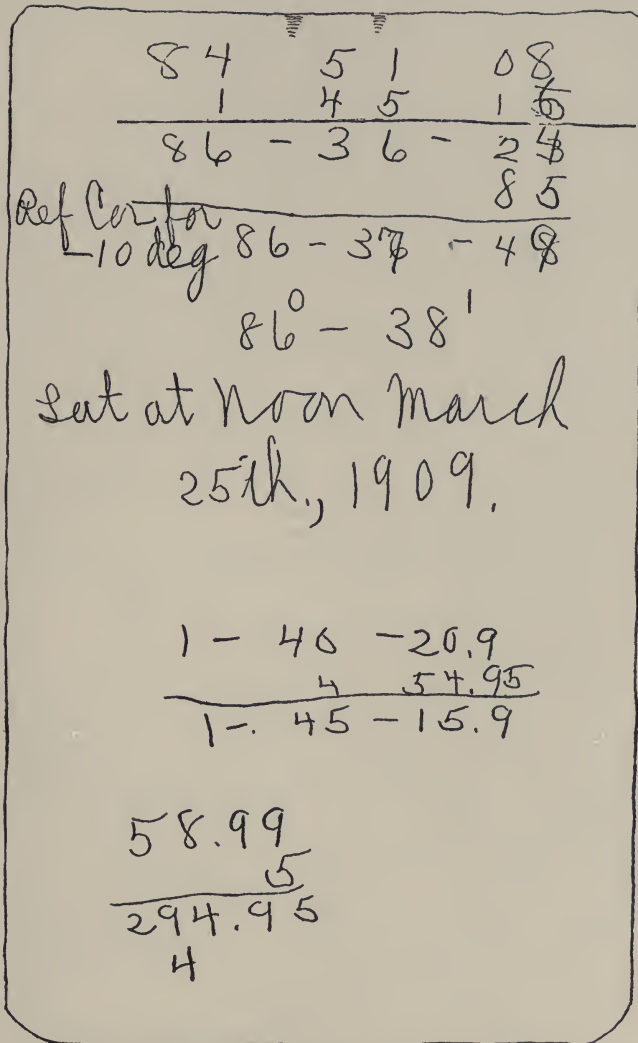 84 51 08
1 45 16
86 - 36 - 24
85
Ref Cor for
-10 deg 86 - 37 - 49
86° - 38'
Lat at noon March
25th., 1909.
1 - 40 - 20.9
4 54.95
1-. 45 - 15.9
58.99
5
294.95
4